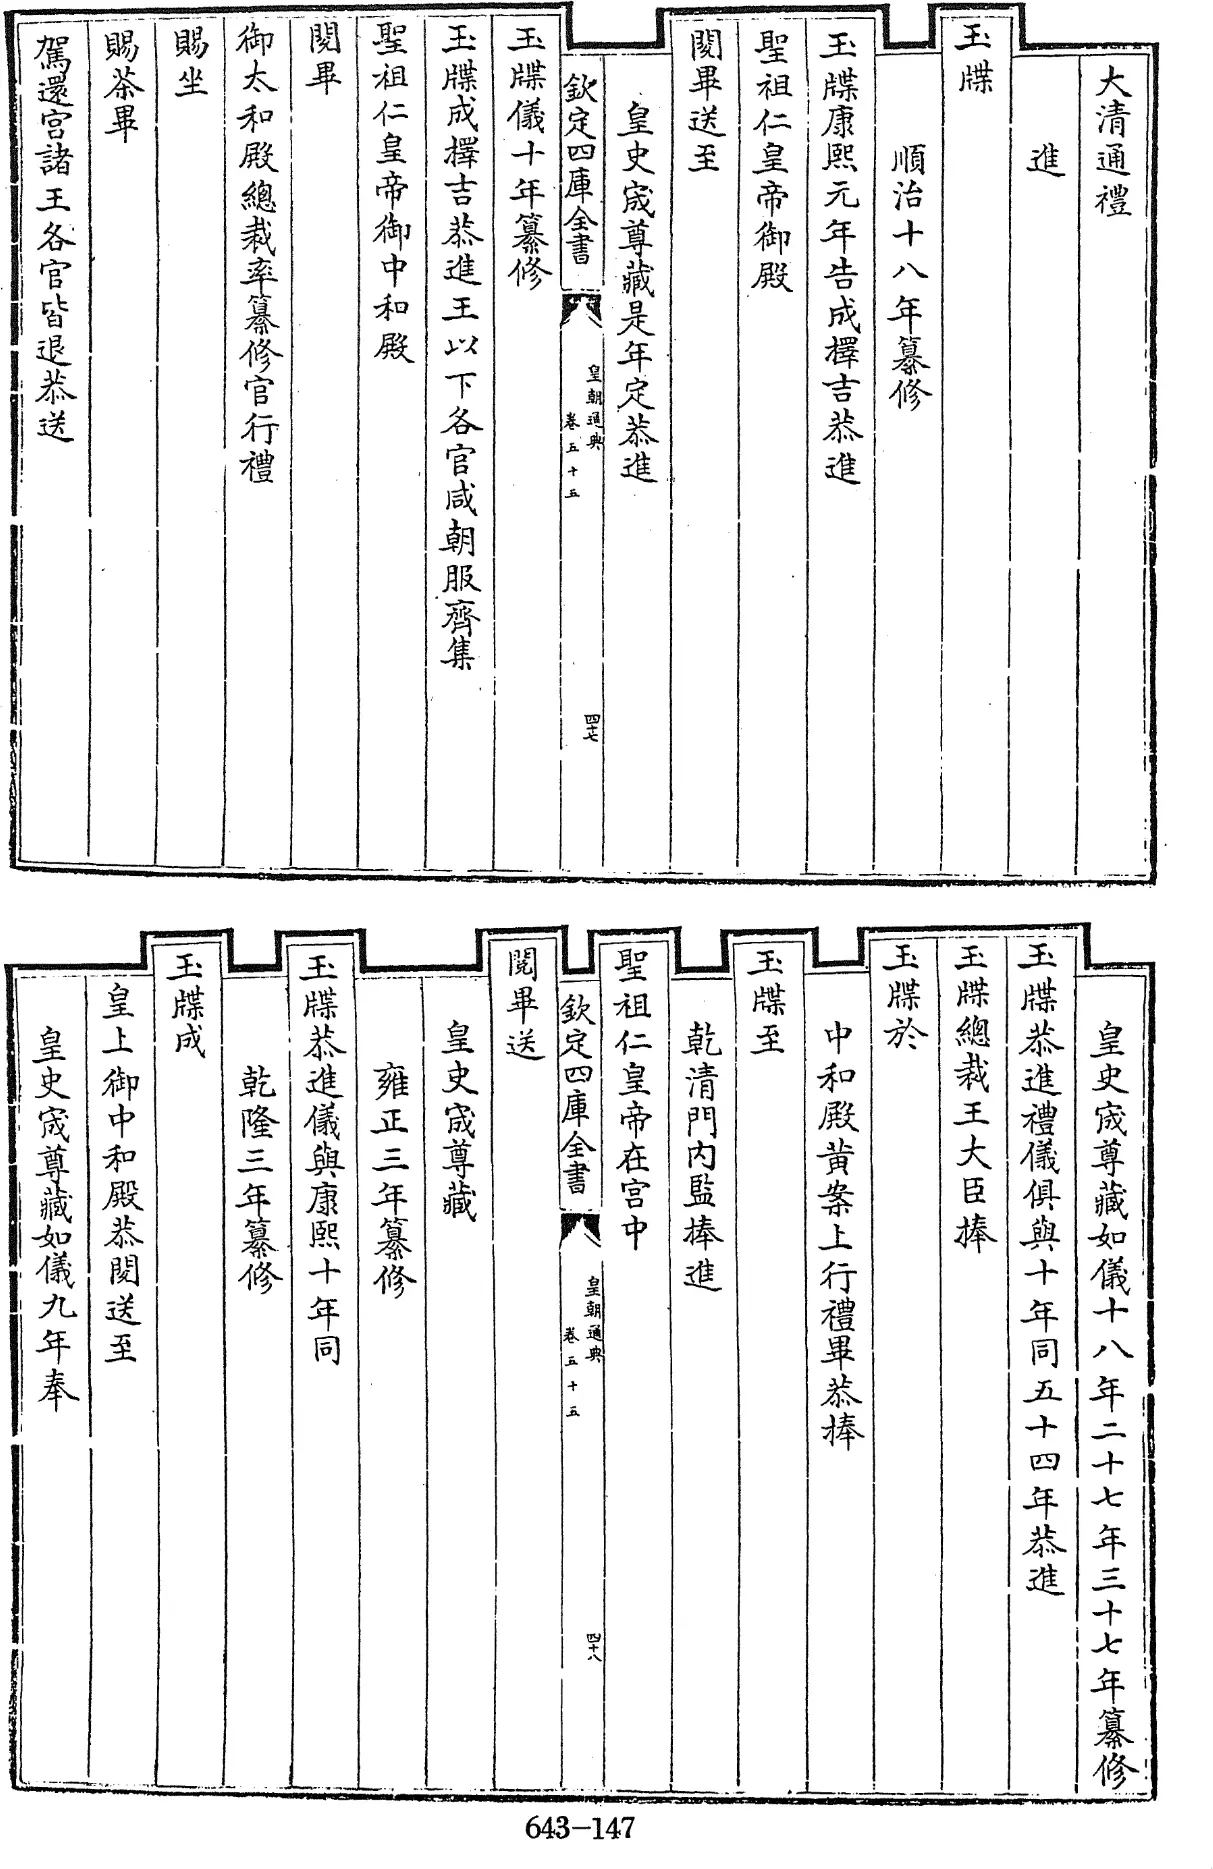 大清通禮
進
玉牒
順治十八年纂修
玉牒康熙元年告成擇吉恭進
聖祖仁皇帝御殿
閱畢送至
皇史宬尊藏是年定恭進
欽定四庫全書
皇朝通典
卷五十五
四十七
玉牒儀十年纂修
玉牒成擇吉恭進王以下各官咸朝服齊集
聖祖仁皇帝御中和殿
閱畢
御太和殿總裁率纂修官行禮
賜坐
賜茶畢
駕還宮諸王各官皆退恭送
皇史宬尊藏如儀十八年二十七年三十七年纂修
玉牒恭進禮儀俱與十年同五十四年恭進
玉牒總裁王大臣捧
玉牒於
中和殿黃案上行禮畢恭捧
玉牒至
乾清門內監捧進
聖祖仁皇帝在宮中
欽定四庫全書
皇朝通典
卷五十五
四十八
閱畢送
皇史宬尊藏
雍正三年纂修
玉牒恭進儀與康熙十年同
乾隆三年纂修
玉牒成
皇上御中和殿恭閱送至
皇史宬尊藏如儀九年奉
643-147